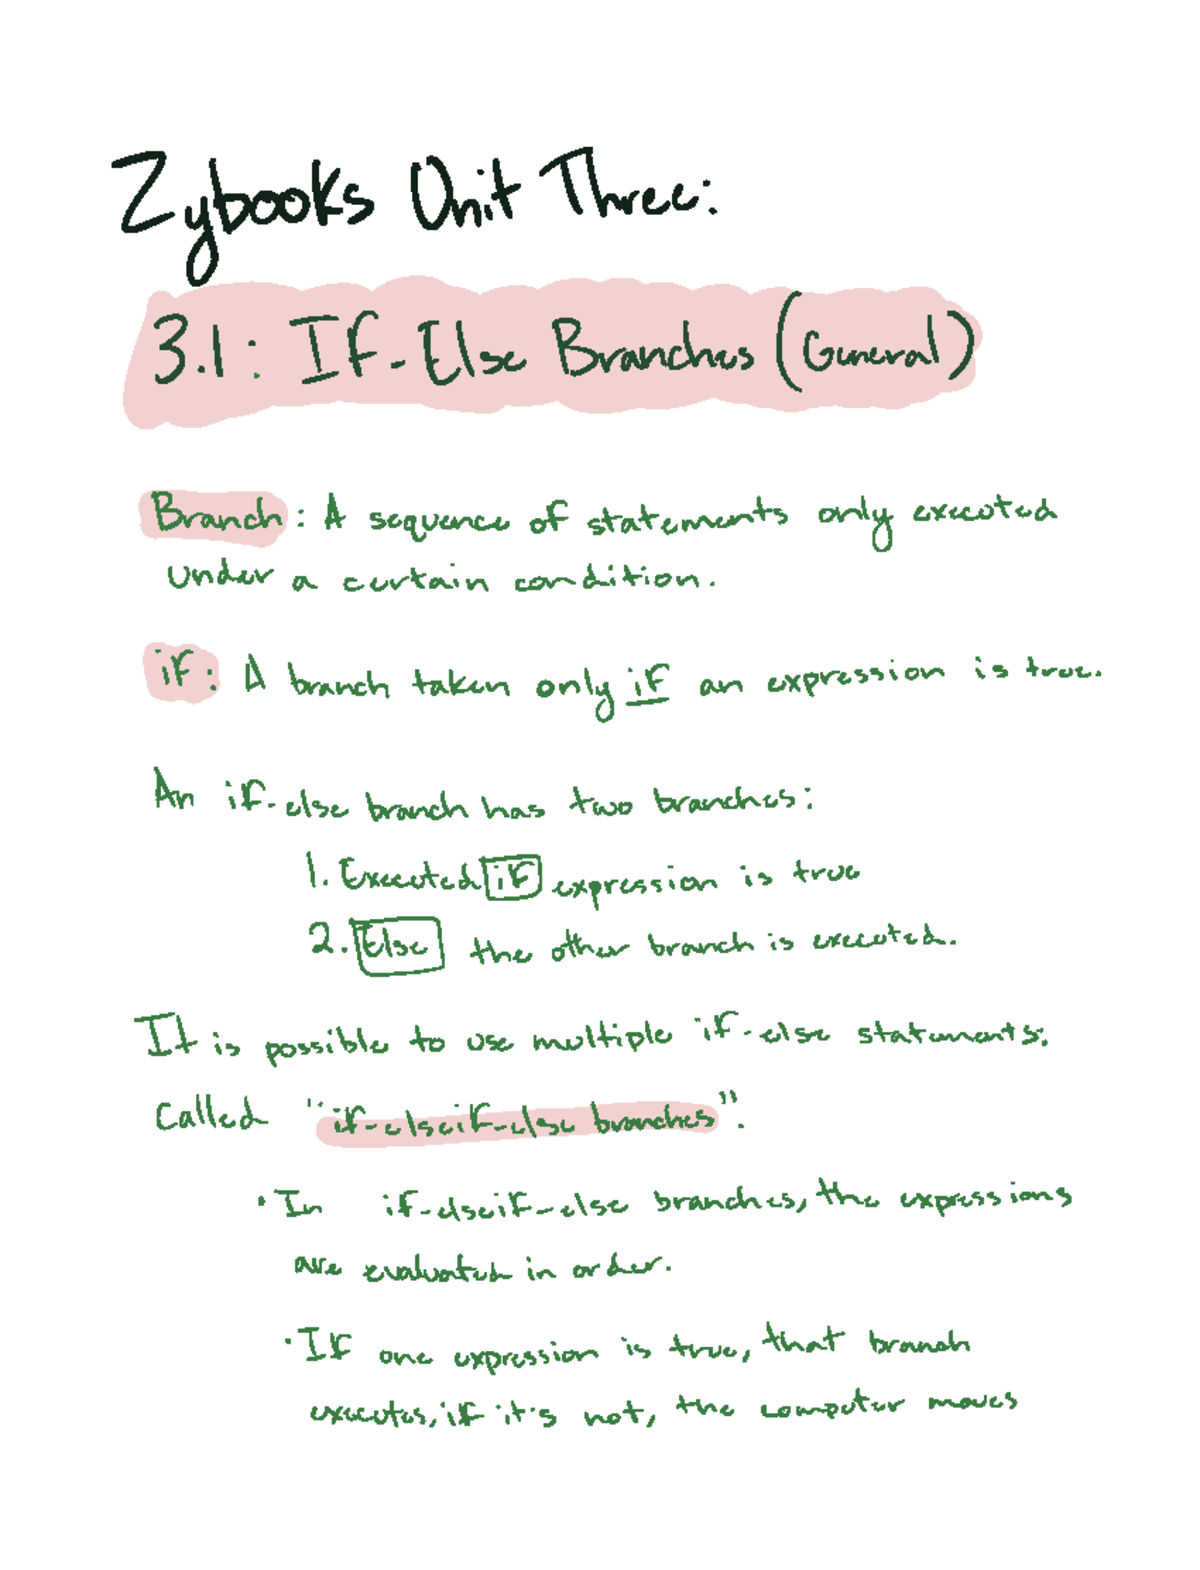 Zybooks Unit Three:
3.1: If-Else Branches (General)
Branch: A sequence of statements only executed
under a certain condition.
if: A branch taken only if an expression is true.
An if-else branch has two branches:
1. Executed if expression is true
2. Else the other branch is executed.
It is possible to use multiple if-else statements:
Called "if-elseif-else branches".
• In if-elseif-else branches, the expressions
are evaluated in order.
• If one expression is true, that branch
executes, if it's not, the computer moves